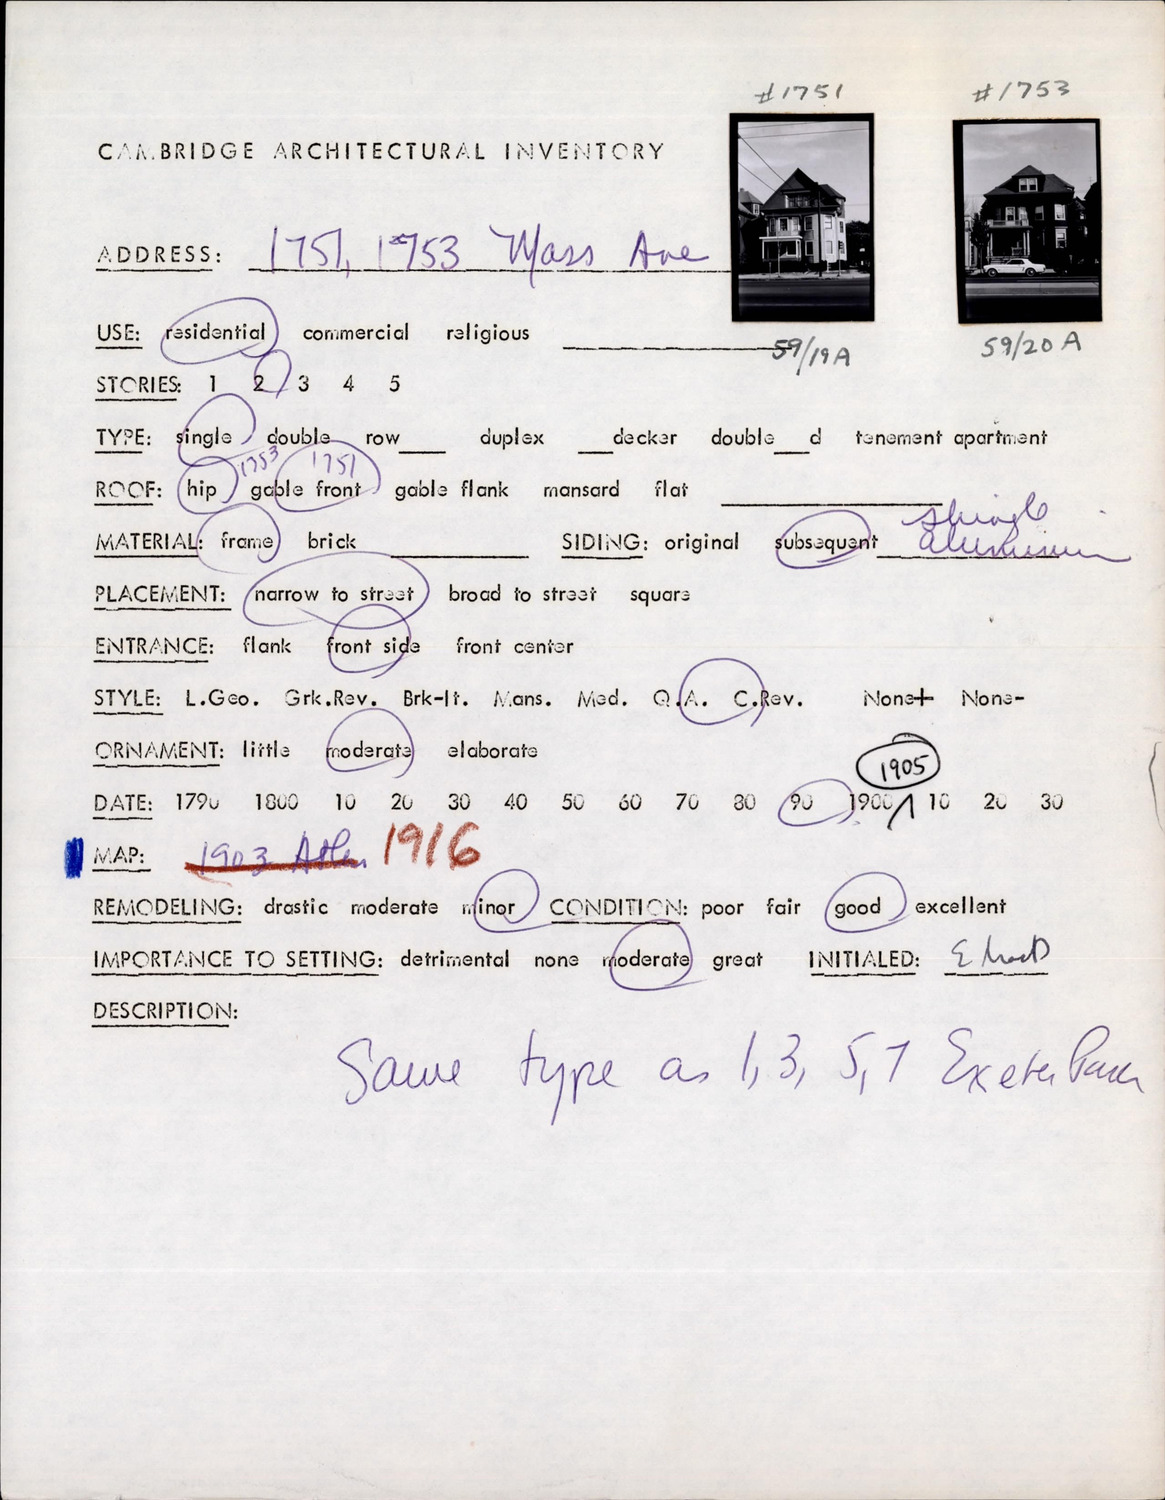 #1751 #1753
CAMBRIDGE ARCHITECTURAL INVENTORY
ADDRESS: 1751, 1753 Mass Ave
59/19A 59/20A
USE: residential commercial religious
STORIES: 1 2 3 4 5
TYPE: single double row___ duplex ___decker double___d tenement apartment
1753 1751
ROOF: hip gable front gable flank mansard flat
shingle
MATERIAL: frame brick SIDING: original subsequent aluminum
PLACEMENT: narrow to street broad to street square
ENTRANCE: flank front side front center
STYLE: L.Geo. Grk.Rev. Brk-It. Mans. Med. Q.A. C.Rev. None+ None-
ORNAMENT: little moderate elaborate
1905
DATE: 1790 1800 10 20 30 40 50 60 70 80 90 1900 10 20 30
MAP: 1903 Atlas 1916
REMODELING: drastic moderate minor CONDITION: poor fair good excellent
IMPORTANCE TO SETTING: detrimental none moderate great INITIALED:
DESCRIPTION:
Same type as 1, 3, 5, 7 Exeter Park